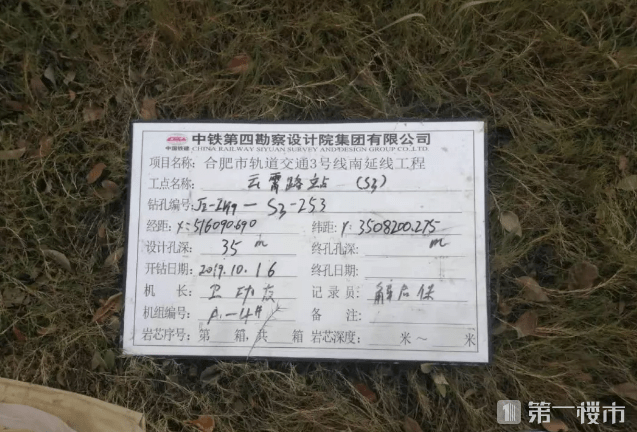 中铁第四勘察设计院集团有限公司
中国铁建 CHINA RAILWAY SIYUAN SURVEY AND DESIGN GROUP CO.,LTD.
项目名称: 合肥市轨道交通3号线南延线工程
工点名称: 云霄路站 (S3)
钻孔编号: S3-253
经距: X=516090.690 纬距: Y:3508200.275
设计孔深: 35 m 终孔孔深: m
开钻日期: 2019.10.16 终孔日期:
机 长: 记录员:
机组编号: 备 注:
岩芯序号: 第 箱,共 箱 岩芯深度: 米～ 米
第一楼市